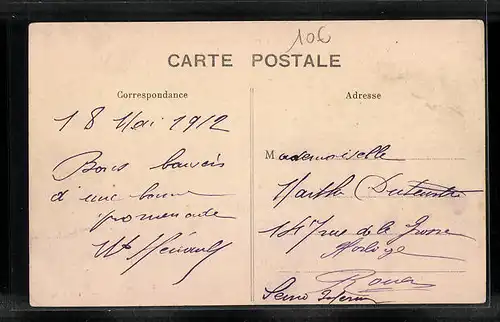 106
CARTE POSTALE
Correspondance
18 Mai 1912
Bons baisers
d'une bonne
promenade
Adresse
Mademoiselle
Marthe
rue de la
Rouen
Seine Infer